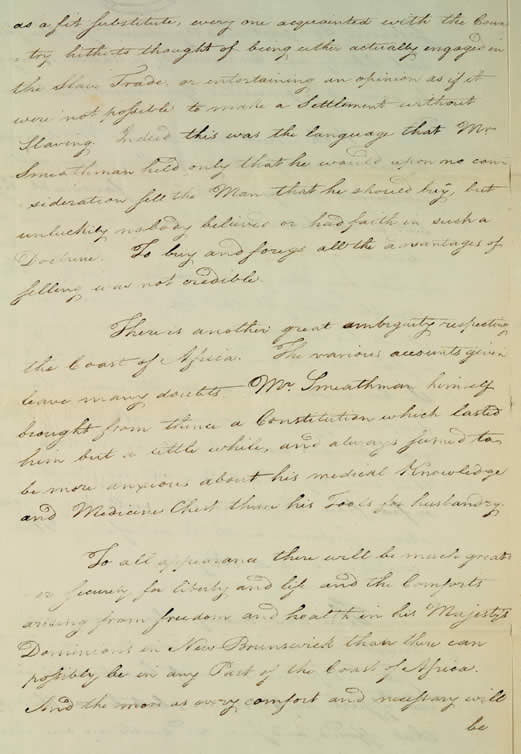 as a fit Substitute, every one acquainted with the Coun
try hitherto thought of being either actually engaged in
the Slave Trade, or entertaining an opinion as if it
were not possible to make a Settlement without
Slaving. Indeed this was the language that Mr
Smeathman held only that he would upon no con
sideration sell the Man that he should buy, but
unluckily nobody believed or had faith in such a
Doctrine. To buy and forego all the advantages of
selling was not credible.
There is another great ambiguity respecting
the Coast of Africa. The various accounts given
leave many doubts. Mr. Smeathman himself
brought from thence a Constitution which lasted
him but a little while, and always seemed to
be more anxious about his medical Knowledge
and Medicine Chest than his Tools for husbandry.
To all appearance there will be much great
er Security for liberty and life and the Comforts
arising from freedom and health in his Majesty's
Dominions in New Brunswick than there can
possibly be in any Part of the Coast of Africa.
And the more as every comfort and necessary will
be